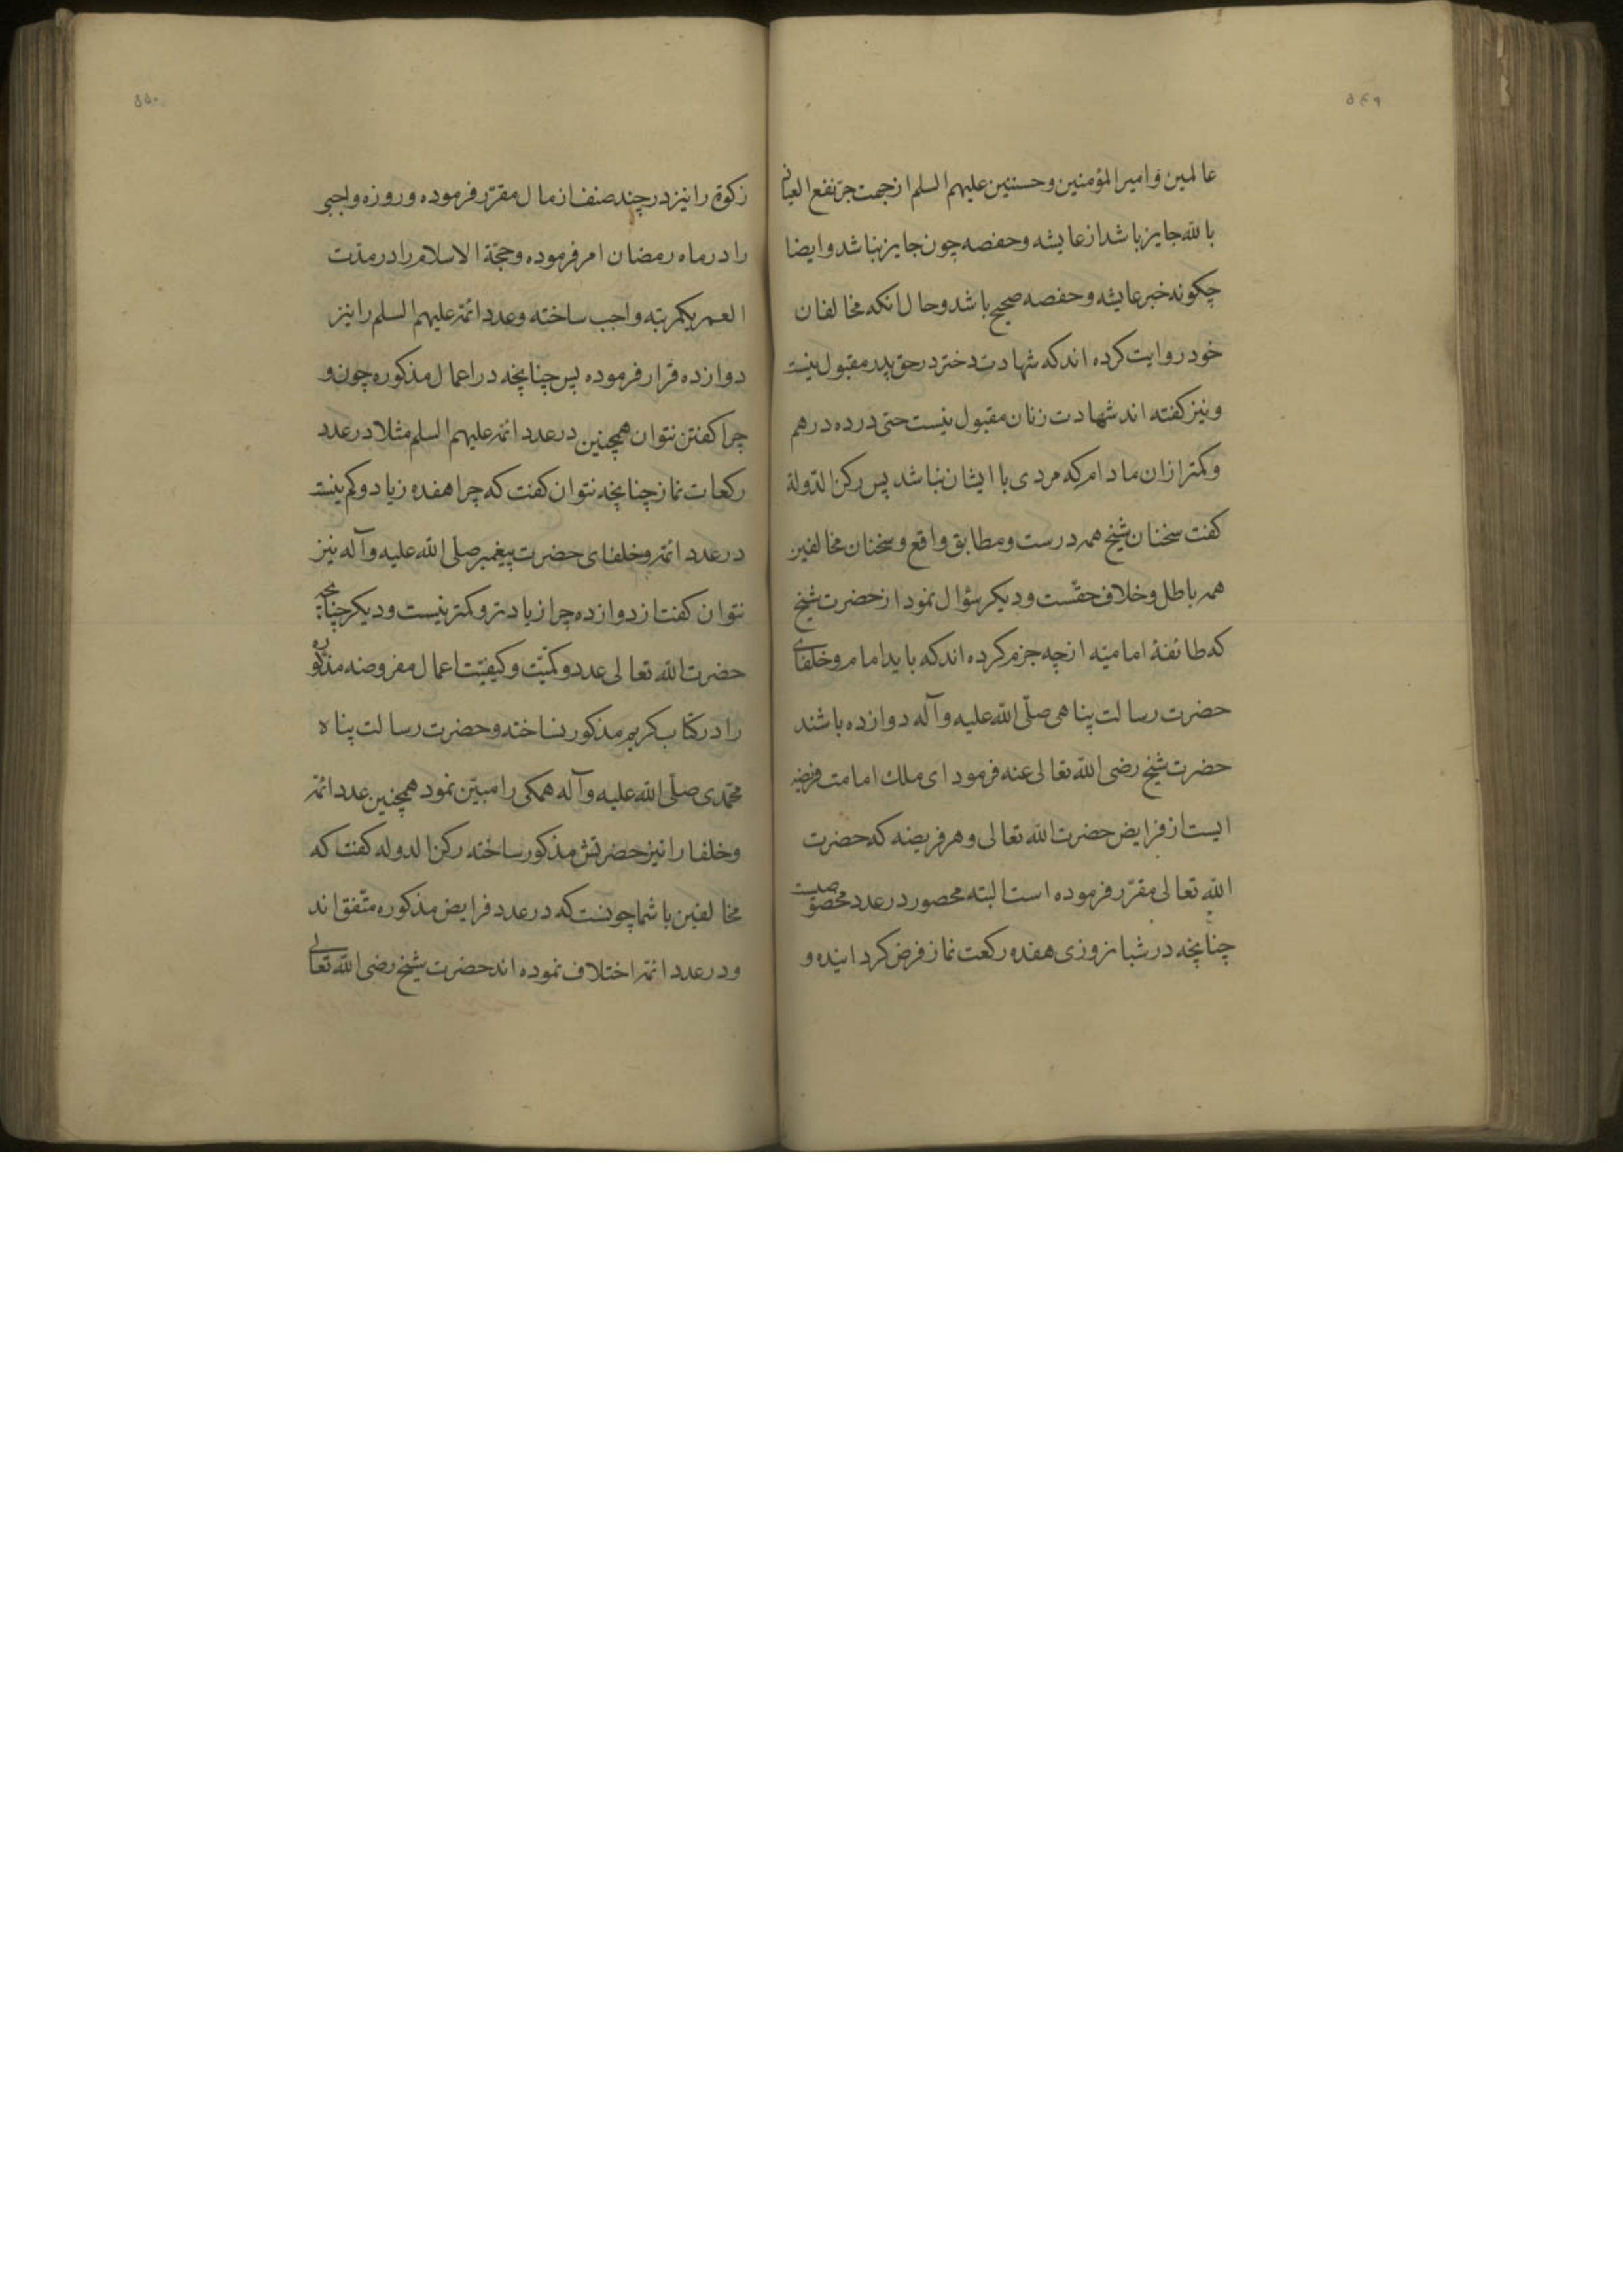 ۵۴۹
عالمین و امیرالمؤمنین و حسنین علیهم السلم از جهت جرّ نفع العیاذ
بالله جایز باشد از عایشه و حفصه چون جایز نباشد و ایضا
چکونه خبر عایشه و حفصه صحیح باشد و حال انکه مخالفان
خود روایت کرده اند که شهادت دختر در حق پدر مقبول نیست
و نیز کفته اند شهادت زنان مقبول نیست حتی در ده درهم
و کمتر ازان مادام که مردی با ایشان نباشد پس رکن الدّولة
کفت سخنان شیخ همه درست و مطابق واقع و سخنان مخالفین
همه باطل و خلاف حقّست و دیکر سؤال نمود از حضرت شیخ
که طائفهٔ امامیّه از چه جزم کرده اند که باید امام و خلفای
حضرت رسالت پناهی صلّی الله علیه و آله دوازده باشند
حضرت شیخ رضی الله تعالی عنه فرمود ای ملک امامت فریضه
ایست از فرایض حضرت الله تعالی و هر فریضه که حضرت
الله تعالی مقرّر فرموده است البته محصور در عدد مخصوصیست
چنانچه در شبانروزی هفده رکعت نماز فرض کردانیده و
۵۵۰
زکوة را نیز در چند صنف از مال مقرّر فرموده و روزه واجبی
را در ماه رمضان امر فرموده و حجّة الاسلام را در مدّت
العمر یکمرتبه واجب ساخته و عدد ائمّه علیهم السلم را نیز
دوازده قرار فرموده پس چنانچه در اعمال مذکوره چون و
چرا کفتن نتوان همچنین در عدد ائمّه علیهم السلم مثلا در عدد
رکعات نماز چنانچه نتوان کفت که چرا هفده زیاد و کم نیست
در عدد ائمّه و خلفای حضرت پیغمبر صلّی الله علیه و آله نیز
نتوان کفت از دوازده چرا زیادتر و کمتر نیست و دیکر چنانچه
حضرت الله تعالی عدد و کمّیّت و کیفیّت اعمال مفروضه مذکوره
را در کتاب کریم مذکور نساخته و حضرت رسالت پناه
محمّدی صلّی الله علیه و آله همکی را مبیّن نمود همچنین عدد ائمّه
و خلفا را نیز حضرتش مذکور ساخته رکن الدوله کفت که
مخالفین با شما چونست که در عدد فرایض مذکوره متّفق اند
و در عدد ائمّه اختلاف نموده اند حضرت شیخ رضی الله تعالی